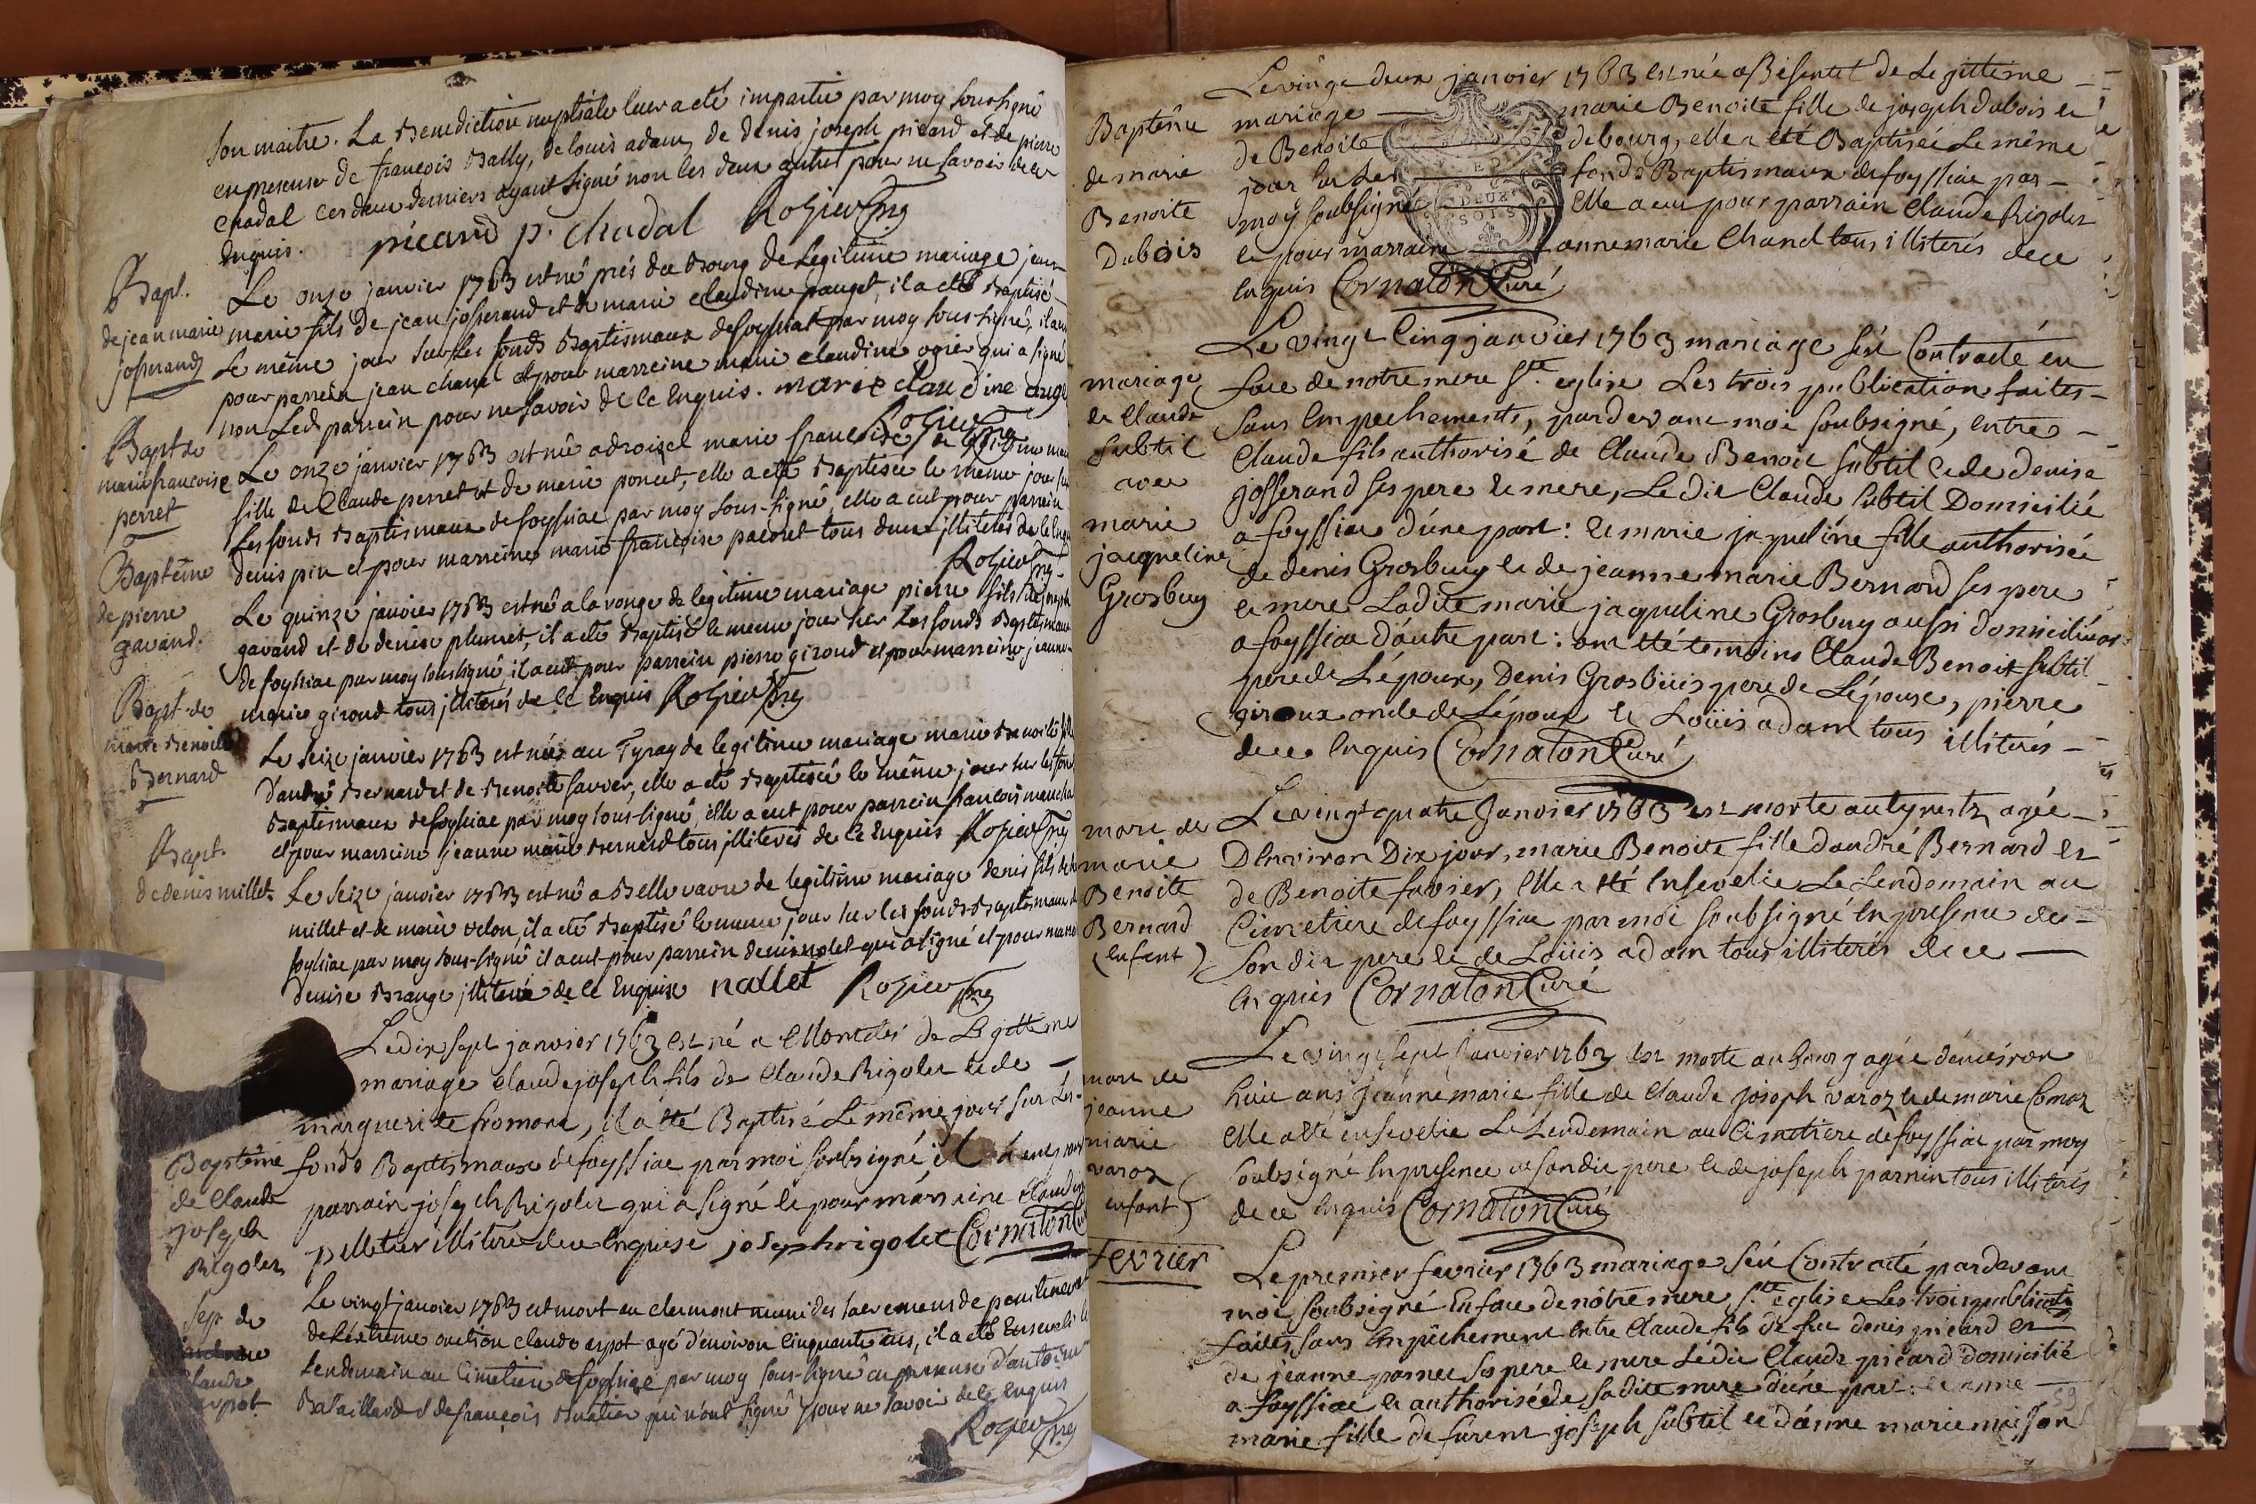 son maitre. La Benediction nuptiale leur a eté impartie par moy sous-signé
en presence de françois Bally, de louis adam, de denis joseph picard et de pierre
chadal ces deux derniers ayant signé non les deux autres pour ne savoir de ce
enquis. picard p. chadal Rozier
Bapt.
de jean marie
josserand
Le onze janvier 1763 est né prés du Bourg de Legitime mariage jean
marie fils de jean josserand et de marie claudine pauget, il a eté Baptisé
Le même jour sur les fonds Baptismaux de foyssiat par moy sous-signé, il a eu
pour parrein jean chanel et pour marreine marie claudine ogier qui a signé
non Led. parrein pour ne savoir de ce Enquis. marie claudine
Rozier
Bapt de
marie francoise
perret
Le onze janvier 1763 est né a marie francoise de legitime
fille de Claude perret et de marie poncet, elle a eté Baptisée le même jour sur
Les fonds Baptismaux de foyssiac par moy sous-signé, elle a eut pour parrein
denis pin et pour marreine marie francoise tous deux illiterés de ce Enquis
Rozier
Baptême
de pierre
gavand.
Le quinze janvier 1763 est né a la vouge de legitime mariage pierre fils de
gavand et de denise plumet, il a eté Baptisé le meme jour sur Les fonds Baptismaux
de foyssiac par moy sous signé, il a eut pour parrein pierre giroud et pour marreine jeanne
marie giroud tous illiterés de ce Enquis Rozier
Bapt. de
marie Benoite
Bernard
Le seize janvier 1763 est née au Tyray de legitime mariage marie Benoite fille
d'andré Bernard et de Benoite favier, elle a eté Baptisée le même jour sur les fonds
Baptismaux de foyssiac par moy sous-signé, elle a eut pour parrein francois
et pour marreine jeanne marie Bernard tous illiterés de ce Enquis Rozier
Bapt.
de denis millet
Le seize janvier 1763 est né a Bellevavre de legitime mariage denis fils de
millet et de marie velon, il a eté Baptisé le meme jour sur les fonds Baptismaux de
foyssiac par moy sous-signé il a eut pour parrein denis nolet qui a signé et pour marreine
denise Brange illiterée de ce Enquise nallet Rozier
Baptême
de Claude
joseph
Rigolet
Le dix sept janvier 1763 est né a Montclés de Legitteme
mariage claude joseph fils de Claude Rigolet et de
marguerite fromont, il a eté Baptisé Le même jour sur Les
fonds Baptismaux de foyssiac par moi soubsigné il a eu pour
parrain joseph Rigolet qui a signé et pour marraine claudine
pelletier illiterée de ce enquise joseph rigolet Cornaton Curé
Sep. de
claude
arpot
Le vingt janvier 1763 est mort au clermont muni des sacremens de penitence et
de l'extreme onction claude arpot agé d'environ cinquante ans, il a eté Enseveli le
lendemain au Cimetiere de foyssiac par moy sous-signé en presence d'antoine
Bataillard et de françois Buatier qui n'ont signé pour ne savoir de ce enquis
Rozier
Baptême
de marie
Benoite
Dubois
Le vingt deux janvier 1763 est née a Bésentet de Legitteme
mariage marie Benoite fille de joseph dubois et
de Benoite debourg, elle a eté Baptisée Le même
jour sur Les fonds Baptismaux de foyssiac par
moy soubsigné Elle a eu pour parrain claude Rigolet
et pour marraine annemarie Chanel tous illiterés de ce
enquis Cornaton Curé
DEUX
SOLS
mariage
de Claude
Subtil
avec
marie
jacqueline
Grosbuy
Le vingt Cinq janvier 1763 mariage s'est Contracté en
face de notre mere Ste. eglise Les trois publications faites
sans Empechements, pardevant moi soubsigné, entre
Claude fils authorisé de Claude Benoit Subtil et de denise
josserand ses pere et mere, Ledit Claude Subtil Domicilié
a foyssiac d'une part: et marie jaqueline fille authorisée
de denis Grosbuy et de jeanne marie Bernard ses pere
et mere Ladite marie jaqueline Grosbuy aussi domiciliée
a foyssiac d'autre part: ont eté temoins Claude Benoit Subtil
pere de L'époux, Denis Grosbuis pere de L'épouse, pierre
giroux oncle de L'époux et Loüis adam tous illiterés
de ce enquis Cornaton Curé
mort de
marie
Benoite
Bernard
(enfant)
Le vingt quatre Janvier 1763 est morte au tyrest agée
D'environ Dix jours, marie Benoite fille d'andré Bernard et
de Benoite favier, elle a eté ensevelie Le Lendemain au
Cimetiere de foyssiac par moi soubsigné en presence de
son dit pere et de Loüis adam tous illiterés de ce
enquis Cornaton Curé
mort de
jeanne
marie
varoz
enfant)
Le vingt sept Janvier 1763 est morte au bourg agée d'environ
huit ans jeanne marie fille de claude joseph varoz et de marie Comoz
elle a eté ensevelie Le Lendemain au Cimetiere de foyssiac par moy
soubsigné en presence de son dit pere et de joseph parnin tous illiterés
de ce enquis Cornaton Curé
fevrier
Le premier fevrier 1763 mariage s'est Contracté pardevant
moi soubsigné En face de nôtre mere Ste eglise Les trois publications
faites sans Empêchement entre Claude fils de feu denis picard et
de jeanne ses pere et mere Ledit Claude picard domicilié
a foyssiac et authorisé de sadite mere d'une part: et anne
marie fille de furent joseph Subtil et d'anne marie maisson
59